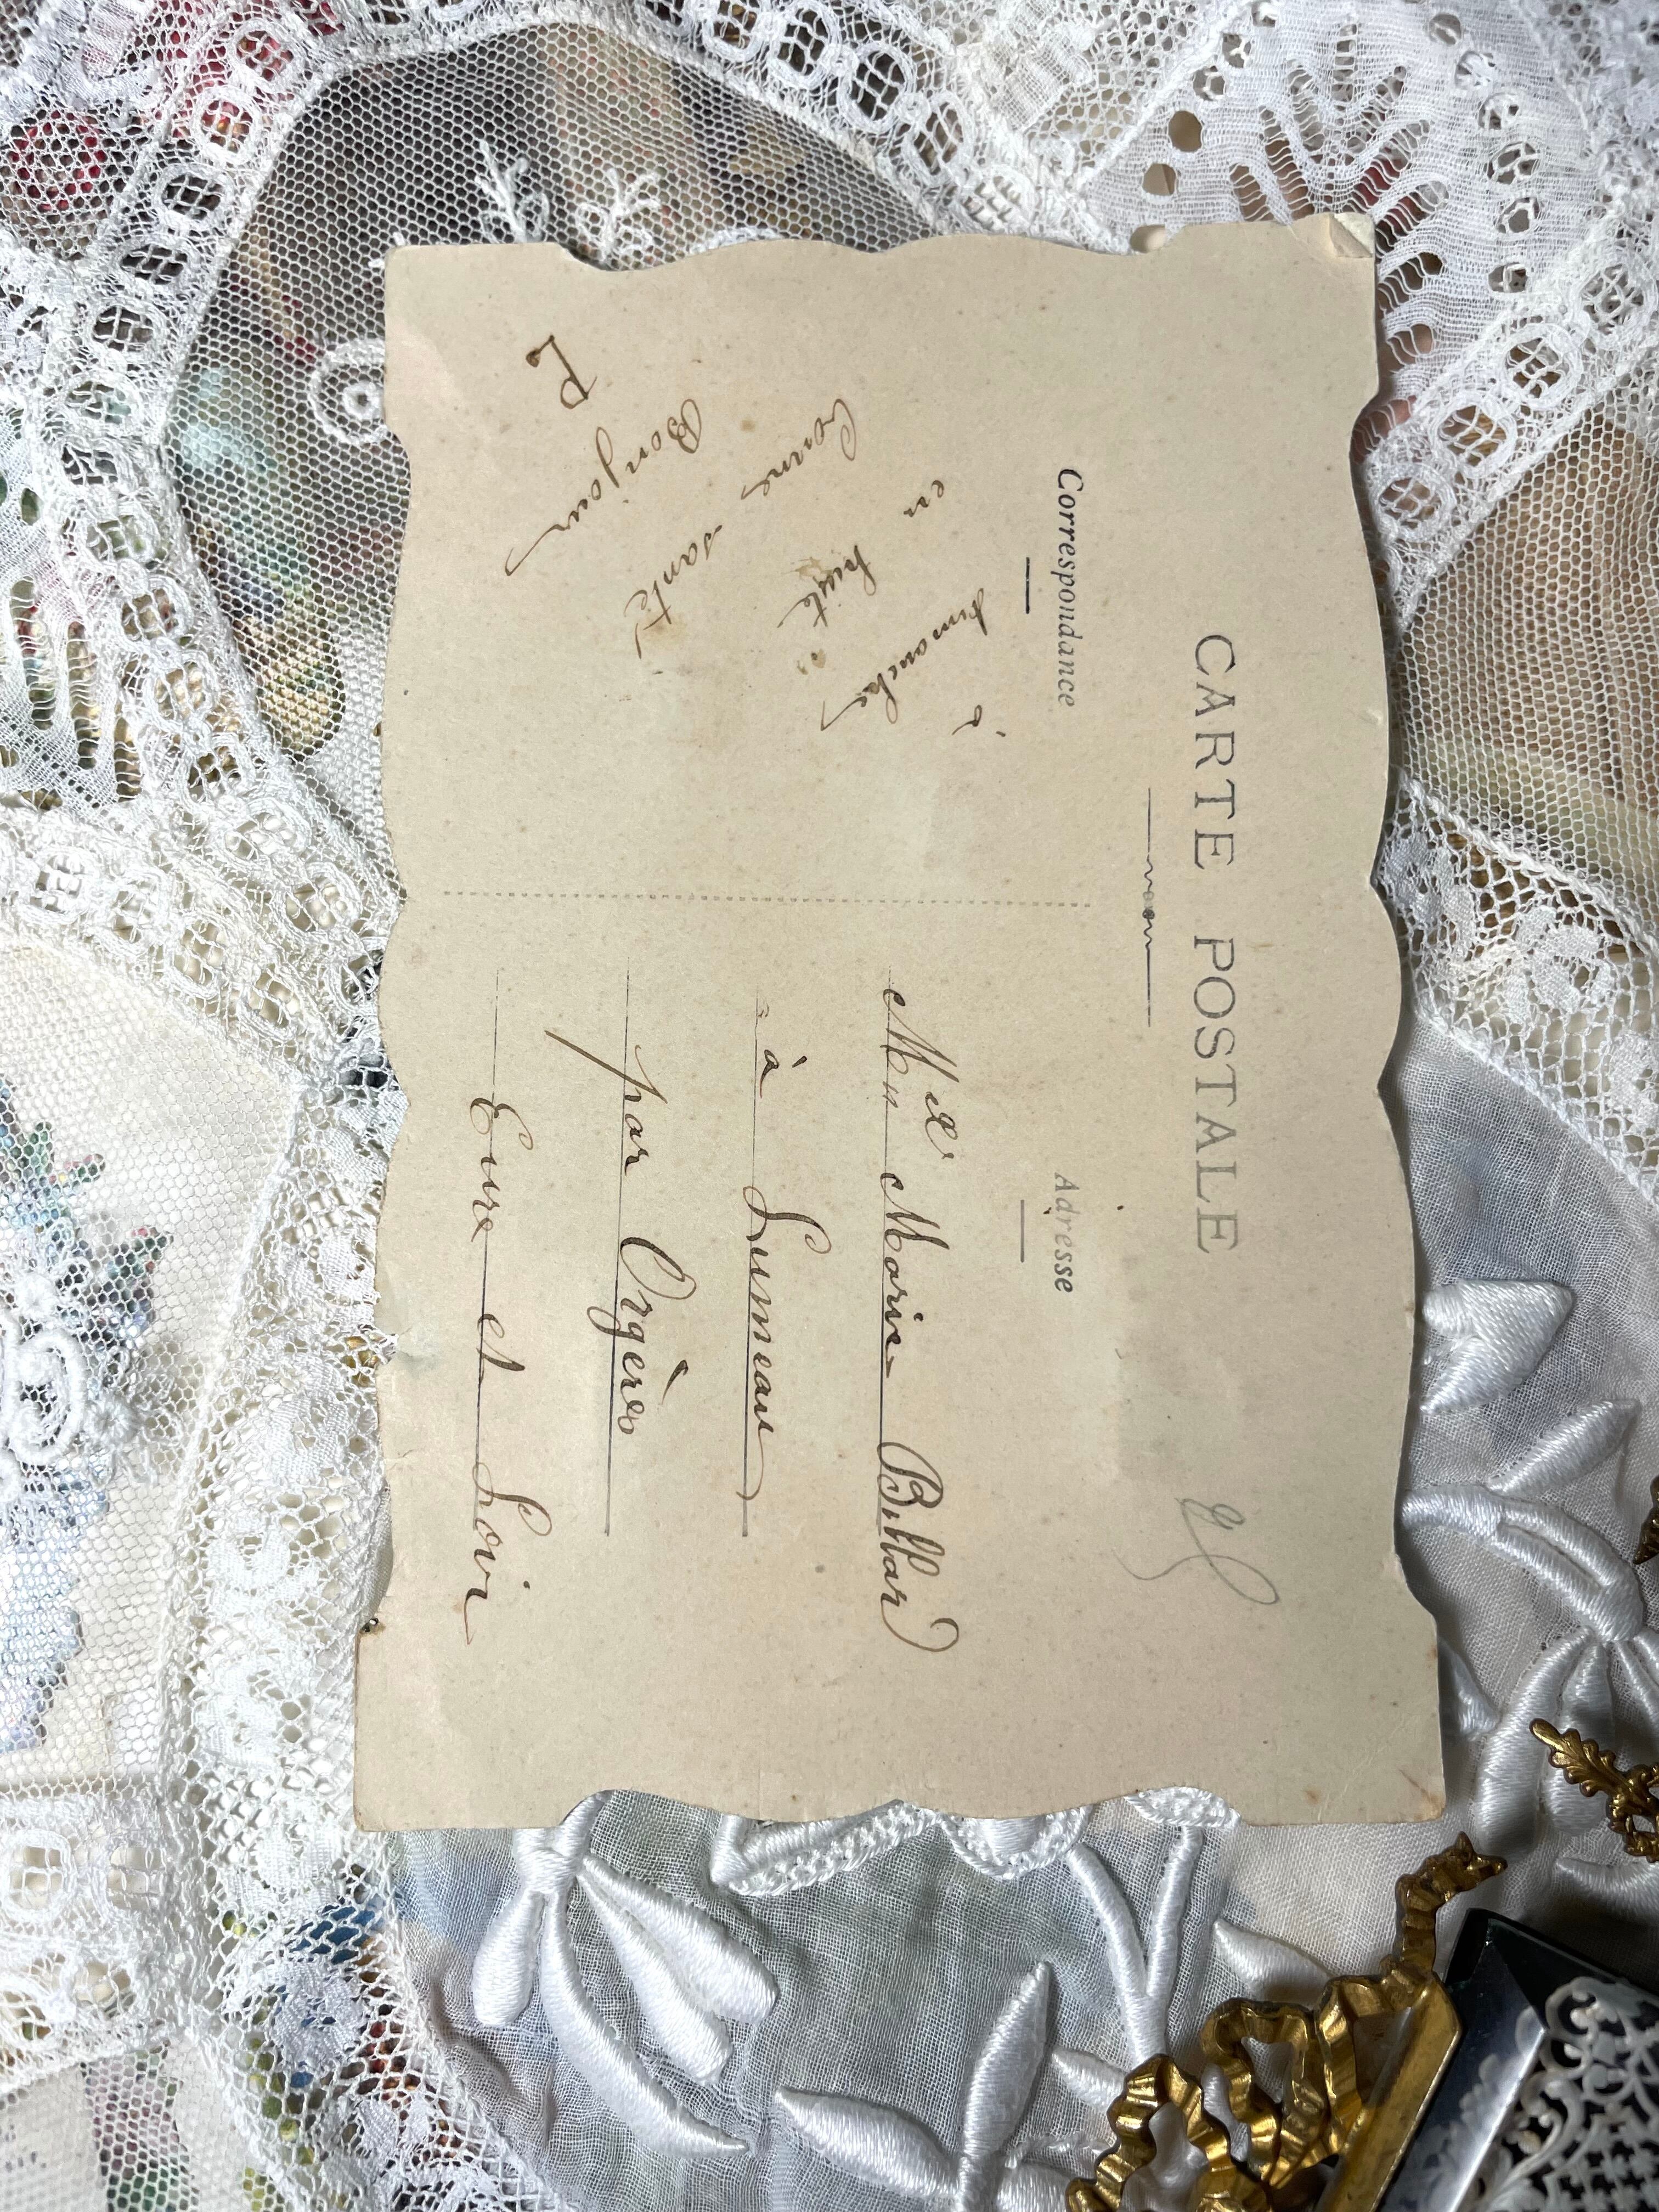 CARTE POSTALE
Correspondance
à
dimanche
en huit
Bonne santé
Bonjour
L P
Adresse
Marie Billard
à Lumeau
par Orgères
Eure et Loir